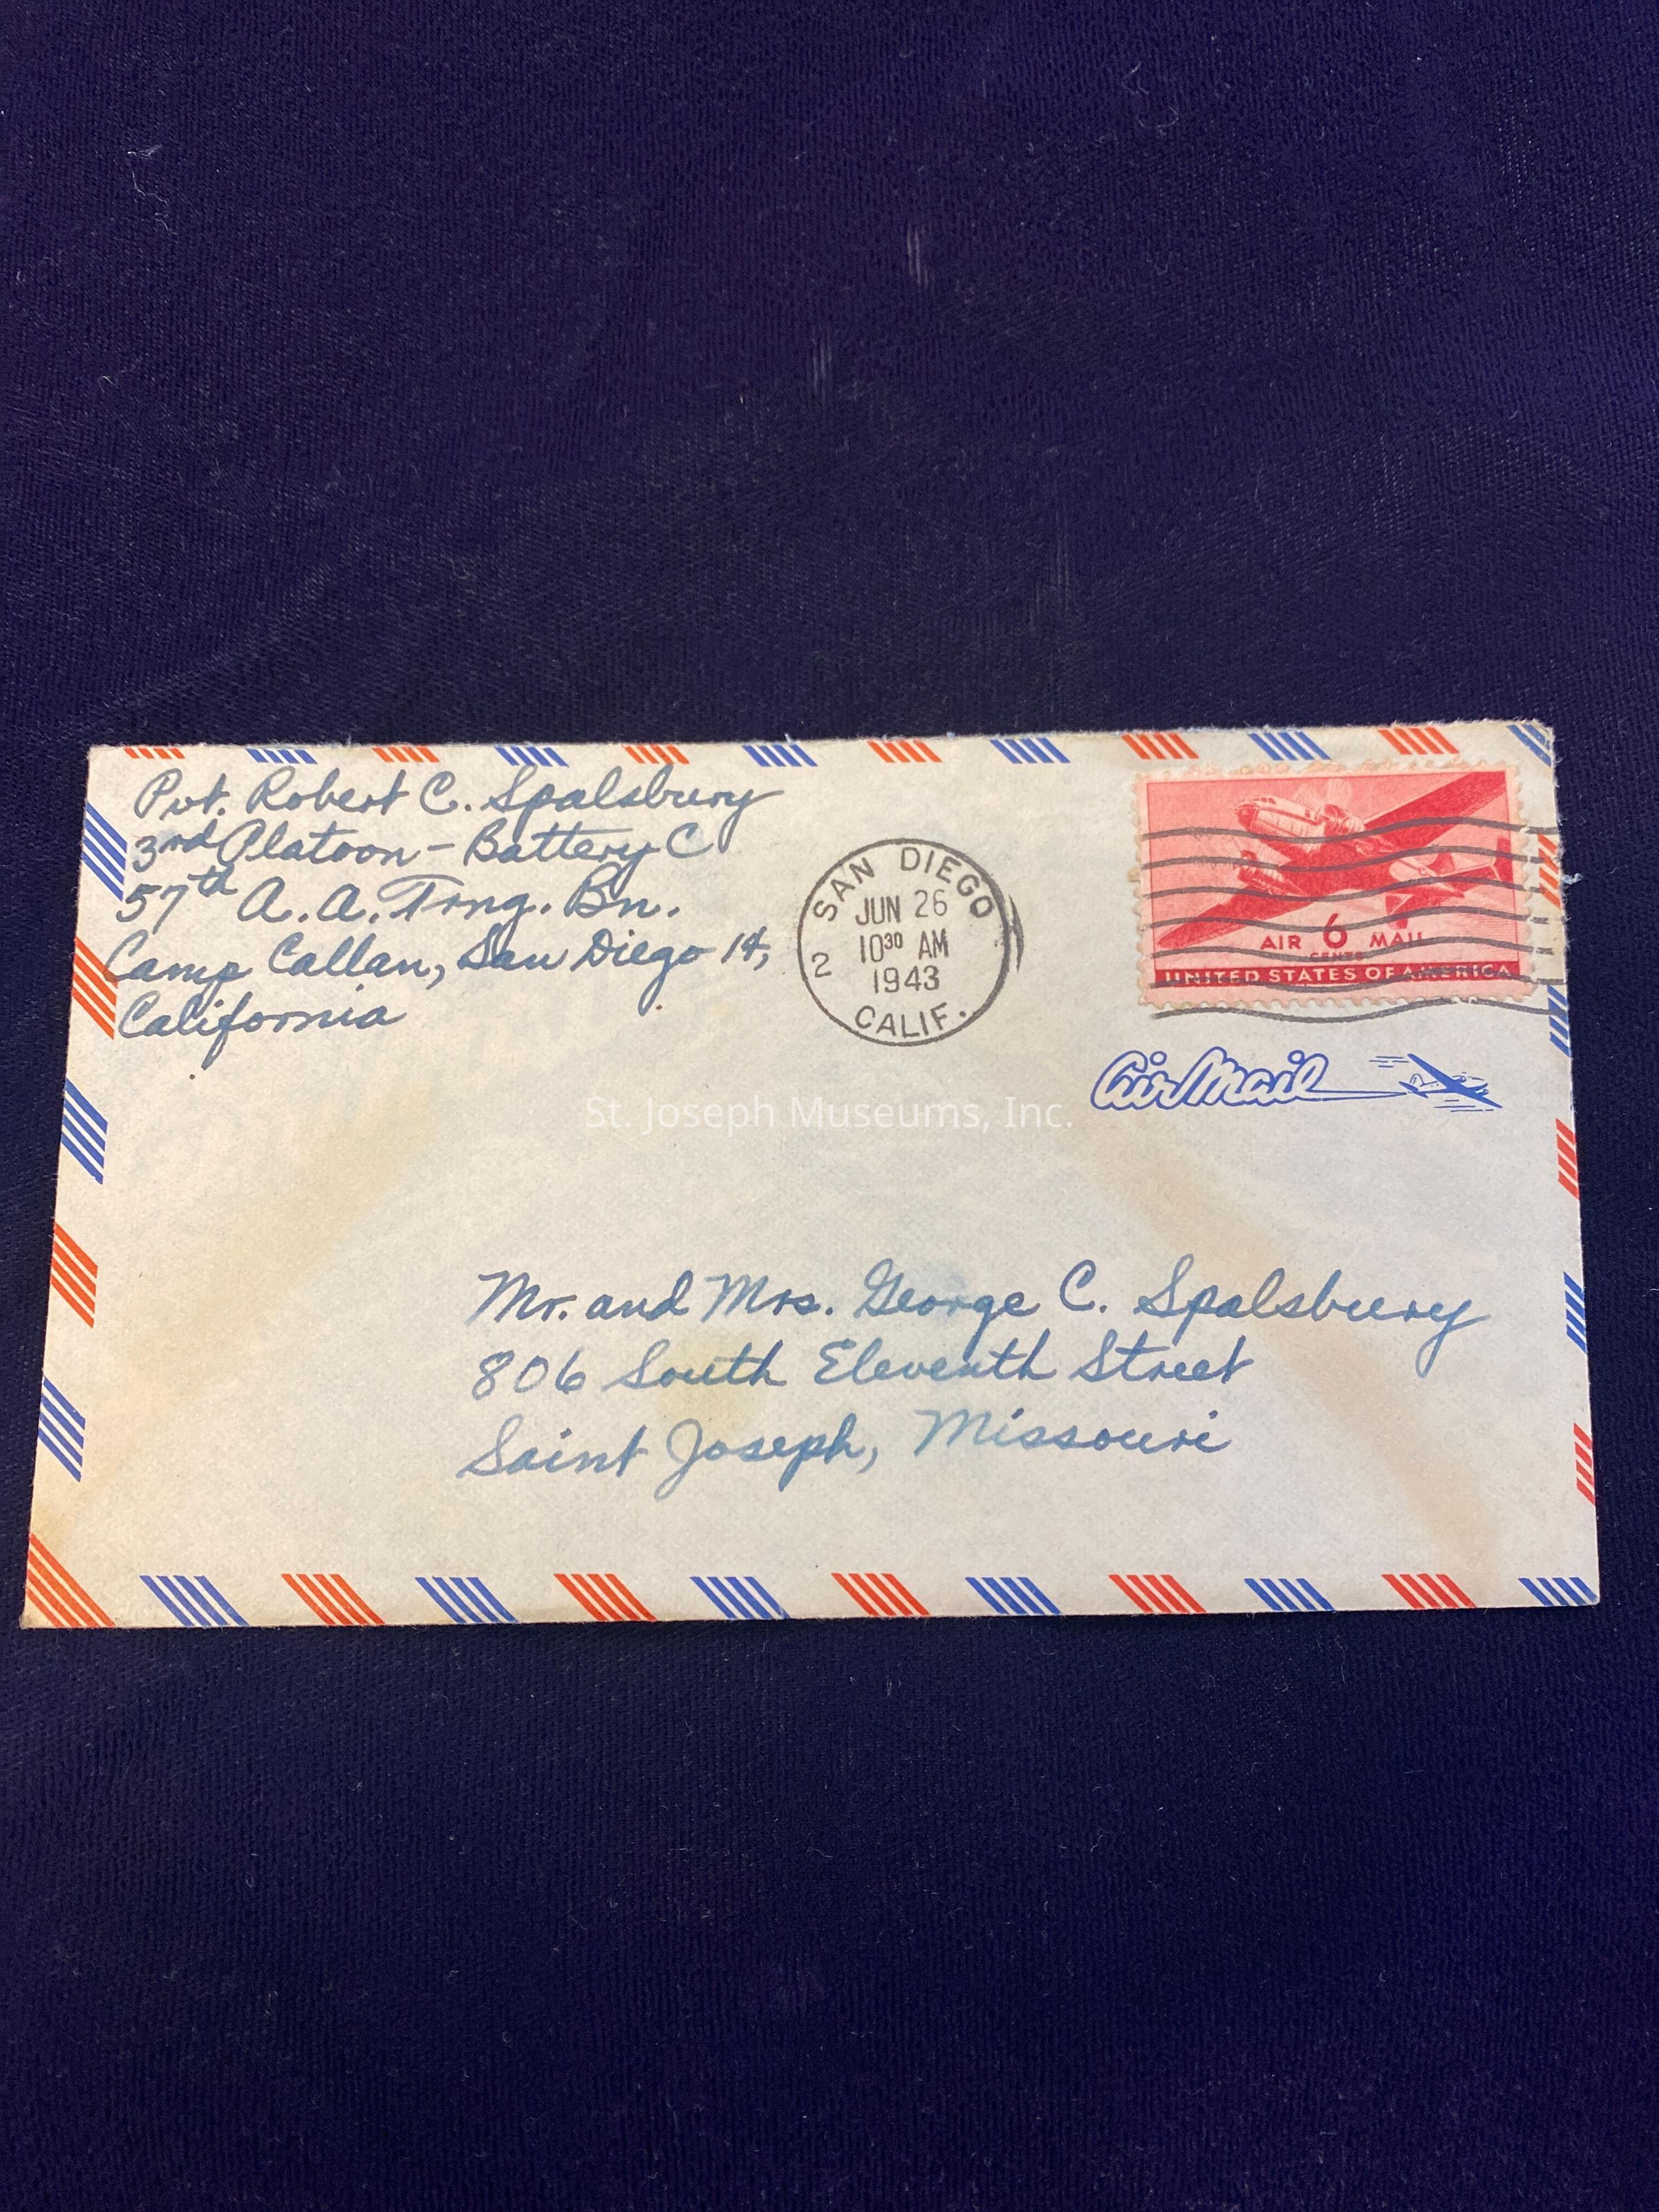 Pvt. Robert C. Spalsbury
3rd Platoon - Battery C
57th A.A. Trng. Bn.
Camp Callan, San Diego 14,
California
SAN DIEGO
JUN 26
10 30 AM
1943
2
CALIF.
AIR 6 MAIL
CENTS
UNITED STATES OF AMERICA
Air Mail
St. Joseph Museums, Inc.
Mr. and Mrs. George C. Spalsbury
806 South Eleventh Street
Saint Joseph, Missouri